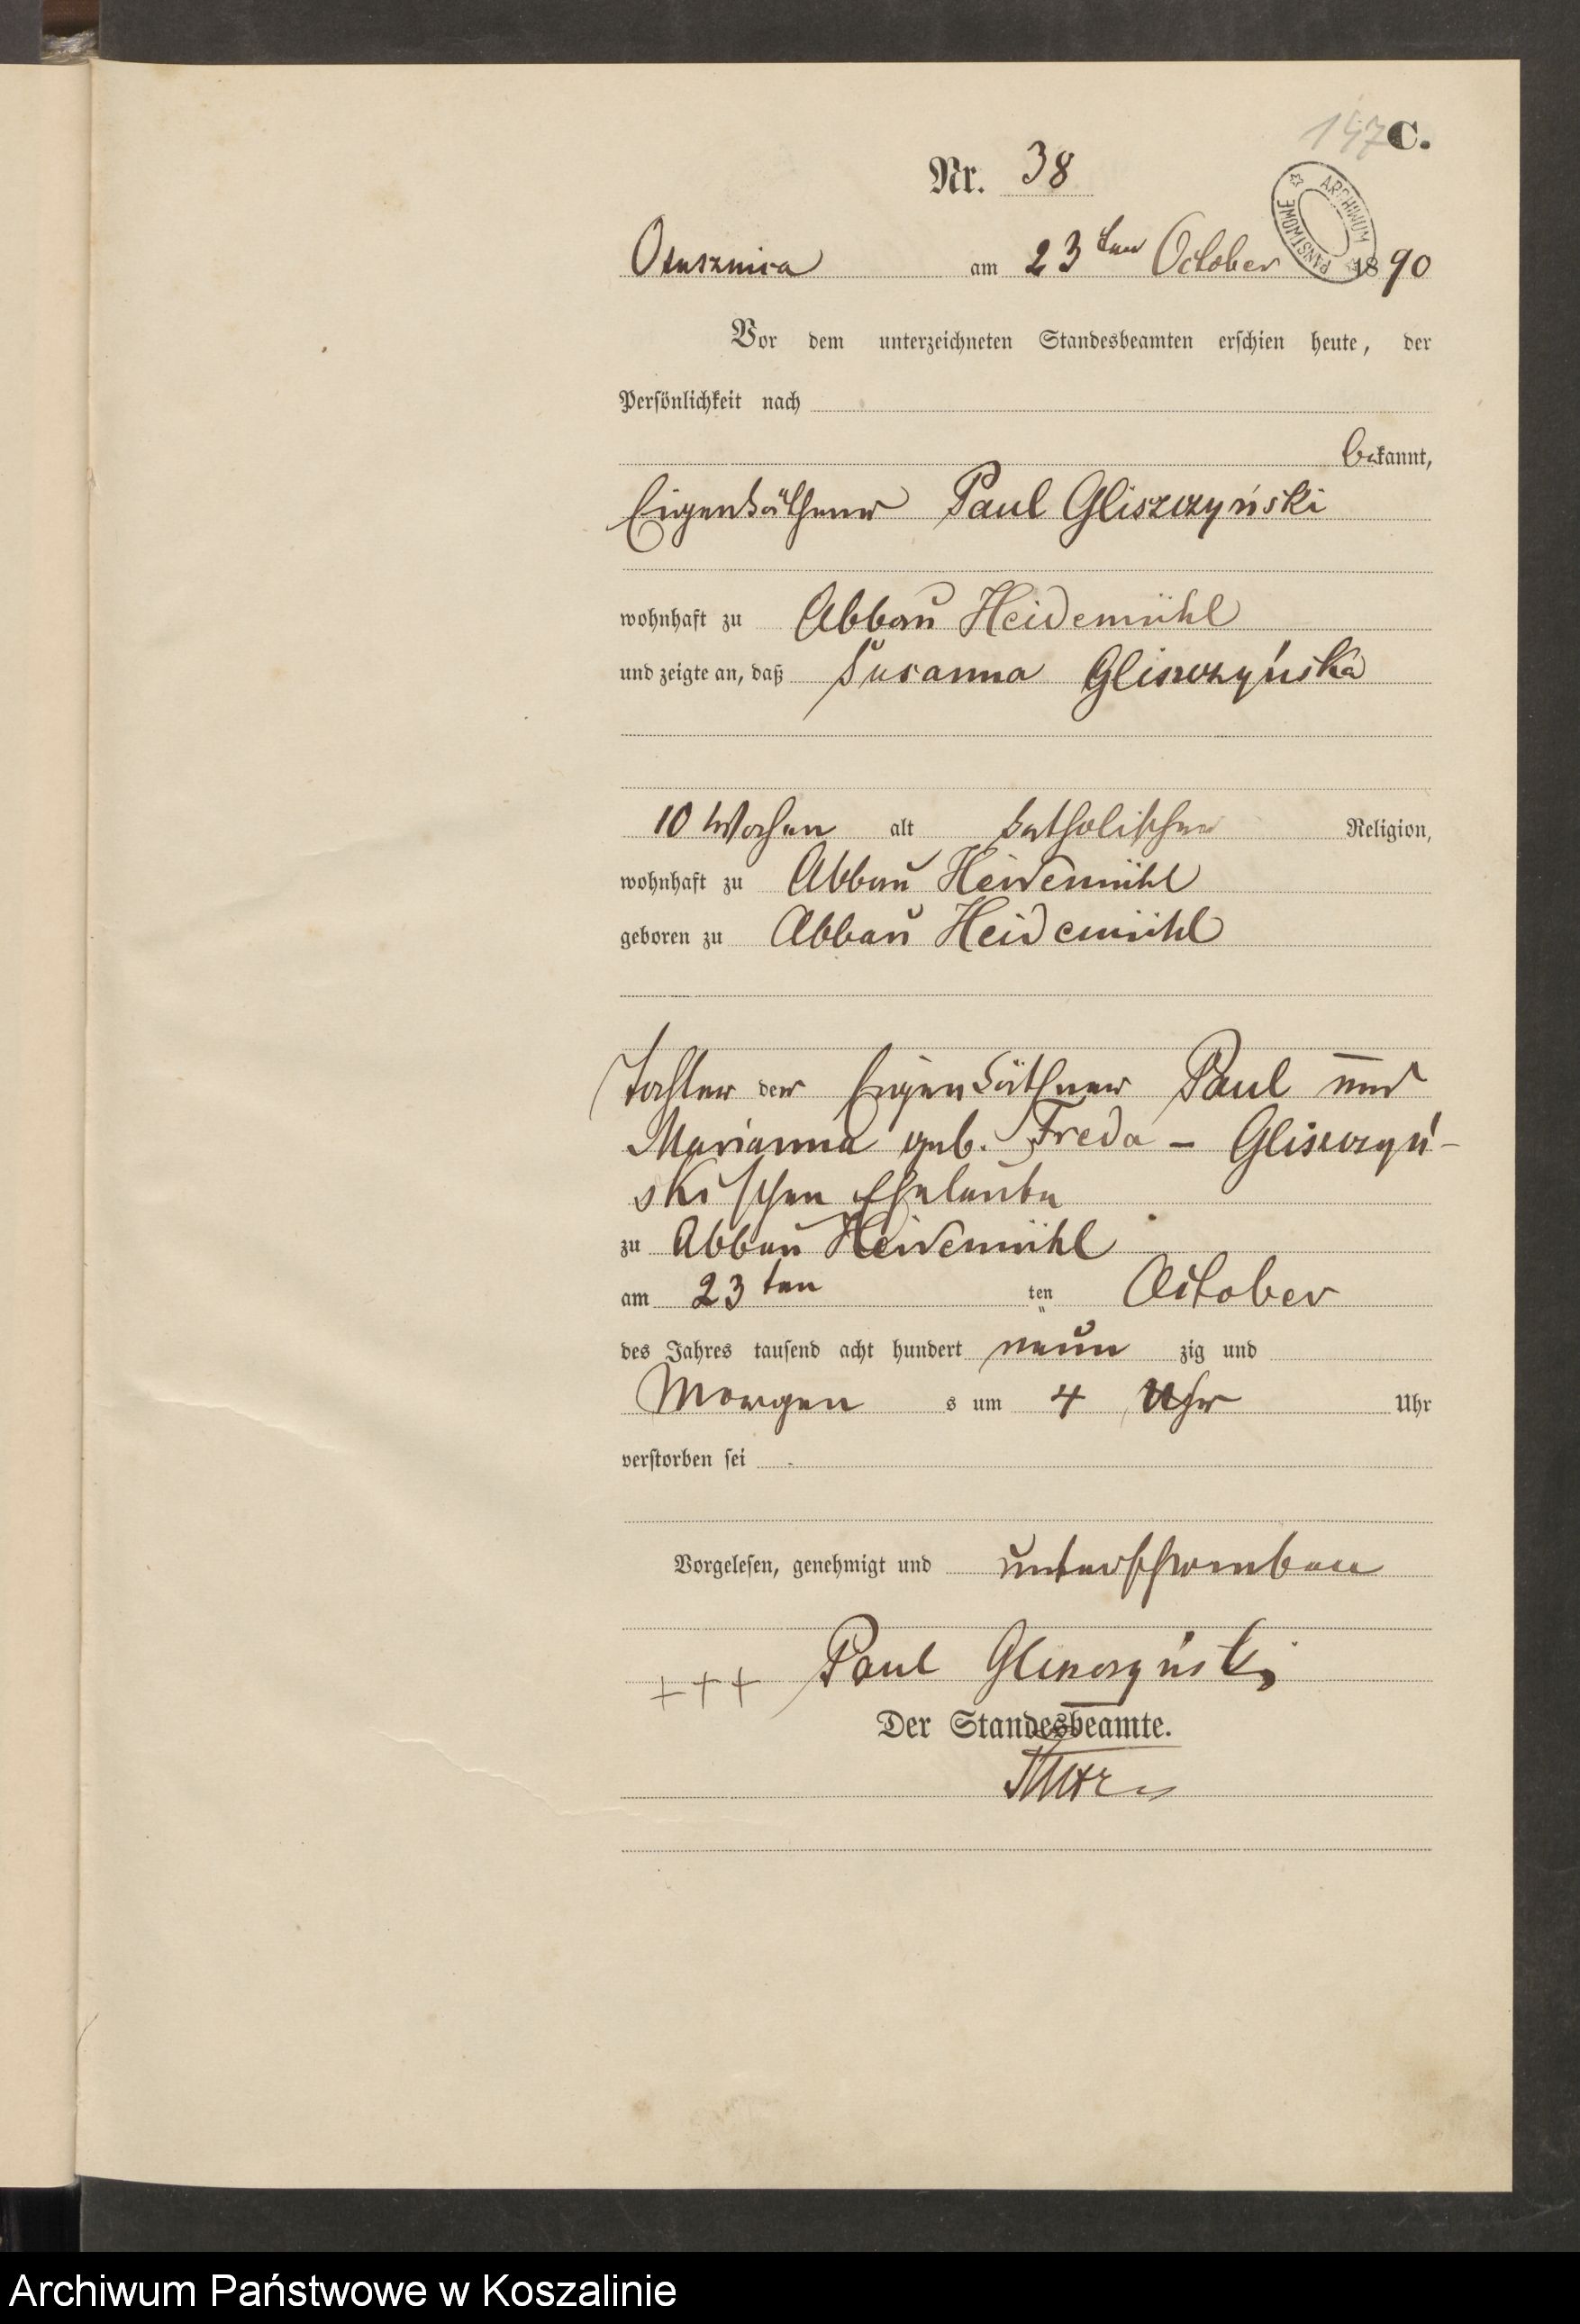 147 C.
Nr. 38
ARCHIWUM PAŃSTWOWE
Osusznica am 23ten October 1890
Vor dem unterzeichneten Standesbeamten erschien heute, der
Persönlichkeit nach
bekannt,
Eigenkäthner Paul Gliszczyński
wohnhaft zu Abbau Heidemühl
und zeigte an, daß Susanna Gliszczyńska
10 Wochen alt katholischer Religion,
wohnhaft zu Abbau Heidemühl
geboren zu Abbau Heidemühl
Tochter der Eigenkäthner Paul und
Marianna geb. Freda - Gliszczyń-
skischen Eheleute
zu Abbau Heidemühl
am 23ten ten October
des Jahres tausend acht hundert neun zig und
Morgen s um 4 Uhr Uhr
verstorben sei
Vorgelesen, genehmigt und unterschrieben
+++ Paul Gliszczyński
Der Standesbeamte.
Archiwum Państwowe w Koszalinie